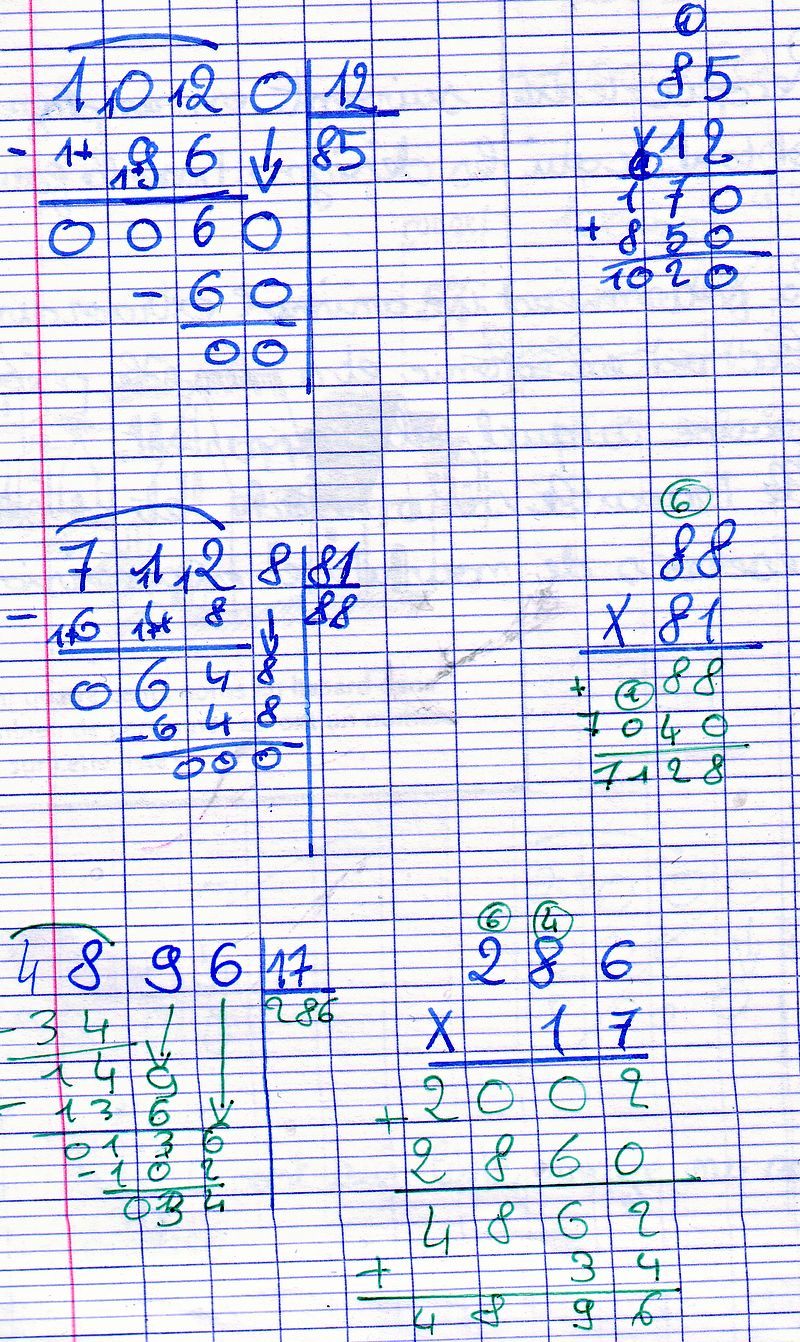 1 0 1 2 0 12
- 1+ 1+9 6 85
0 0 6 0
- 6 0
0 0
1
85
X 12
170
+ 850
1020
7 1 1 1 2 8 81
- 1+6 1+4 8 88
0 6 4 8
- 6 4 8
0 0 0
6
88
X 81
+ 1 88
7040
7128
4 8 9 6 17
- 3 4 286
1 4 9
- 1 3 6
0 1 3 6
- 1 0 2
0 3 4
6 4
2 8 6
X 1 7
2 0 0 2
+ 2 8 6 0
4 8 6 2
+ 3 4
4 8 9 6